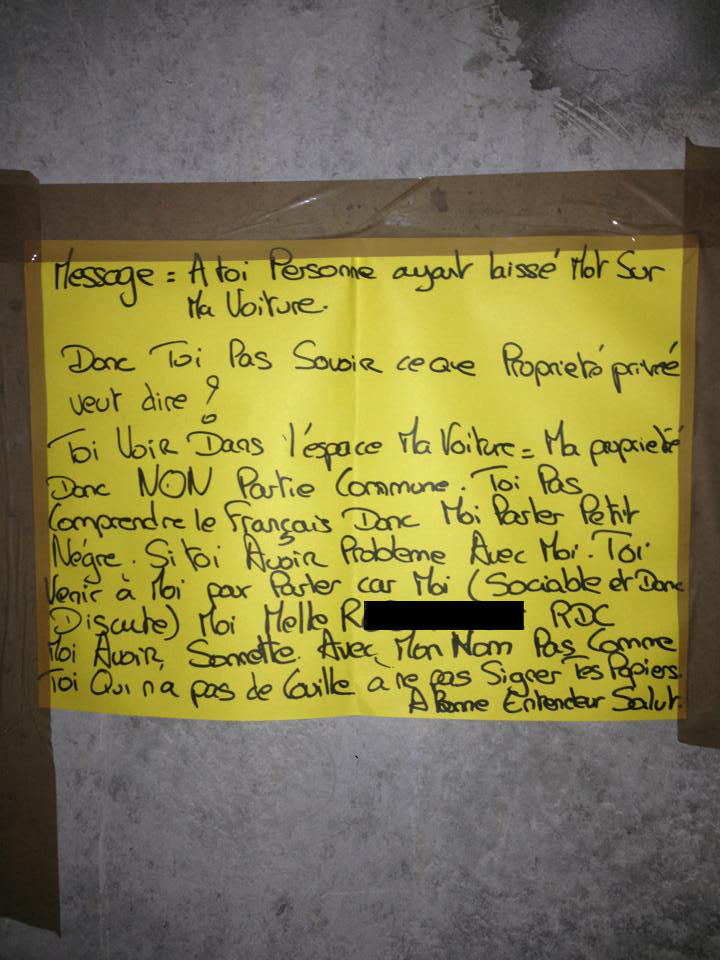 Message = A toi Personne ayant laissé Mot Sur
Ma Voiture.
Donc Toi Pas Savoir ce que Proprieté privée
veut dire ?
Toi Voir Dans l'éspace Ma Voiture = Ma proprieté
Donc NON Partie Commune. Toi Pas
Comprendre le Français Donc Moi Parler Petit
Négre. Si toi Avoir Probleme Avec Moi. Toi
Venir à Moi pour Parler car Moi (Sociable et Donc
Discute) Moi Melle R RDC
Moi Avoir Sonnette Avec Mon Nom Pas Comme
Toi Qui n'a pas de Couille a ne pas Signer Tes Papiers.
A Bonne Entendeur Salut.